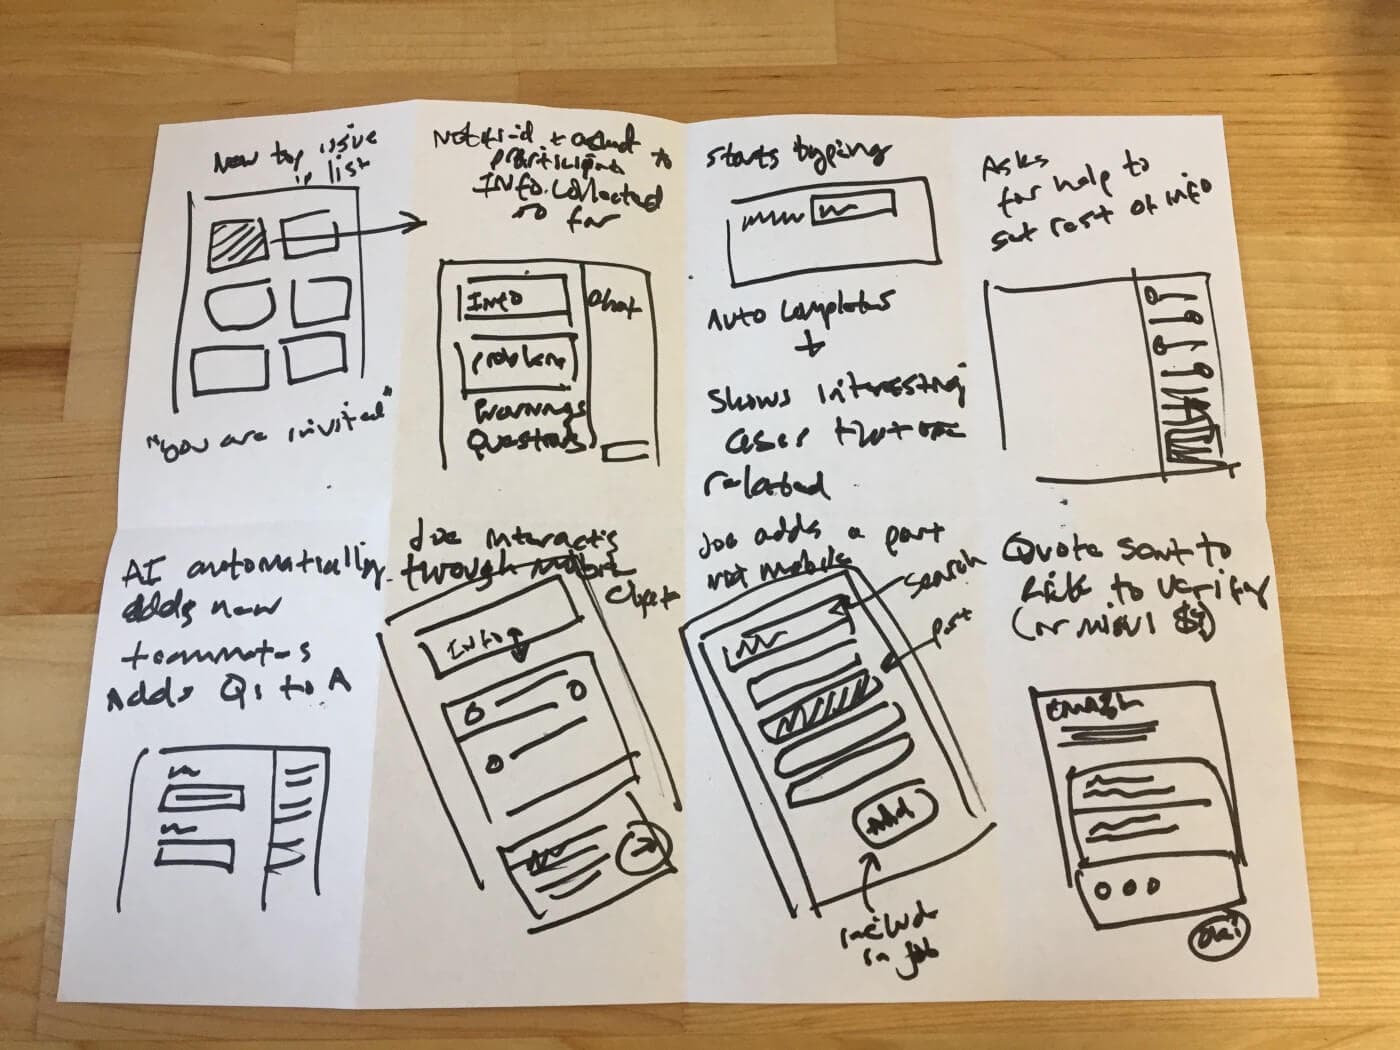 New top issue
in list
"You are invited"
+ asked to
participate
Info collected
so far
Info
chat
Problem
Warnings
Questions
Starts typing
Auto completes
+
shows interesting
cases that are
related
Asks
for help to
get rest of info
AI automatically
adds new
teammates
Adds Qs to A
Joe interacts
through mobile
chat
Info
Joe adds a part
via mobile
search
part
Add
include
in job
Quote sent to
to verify
(or
Email